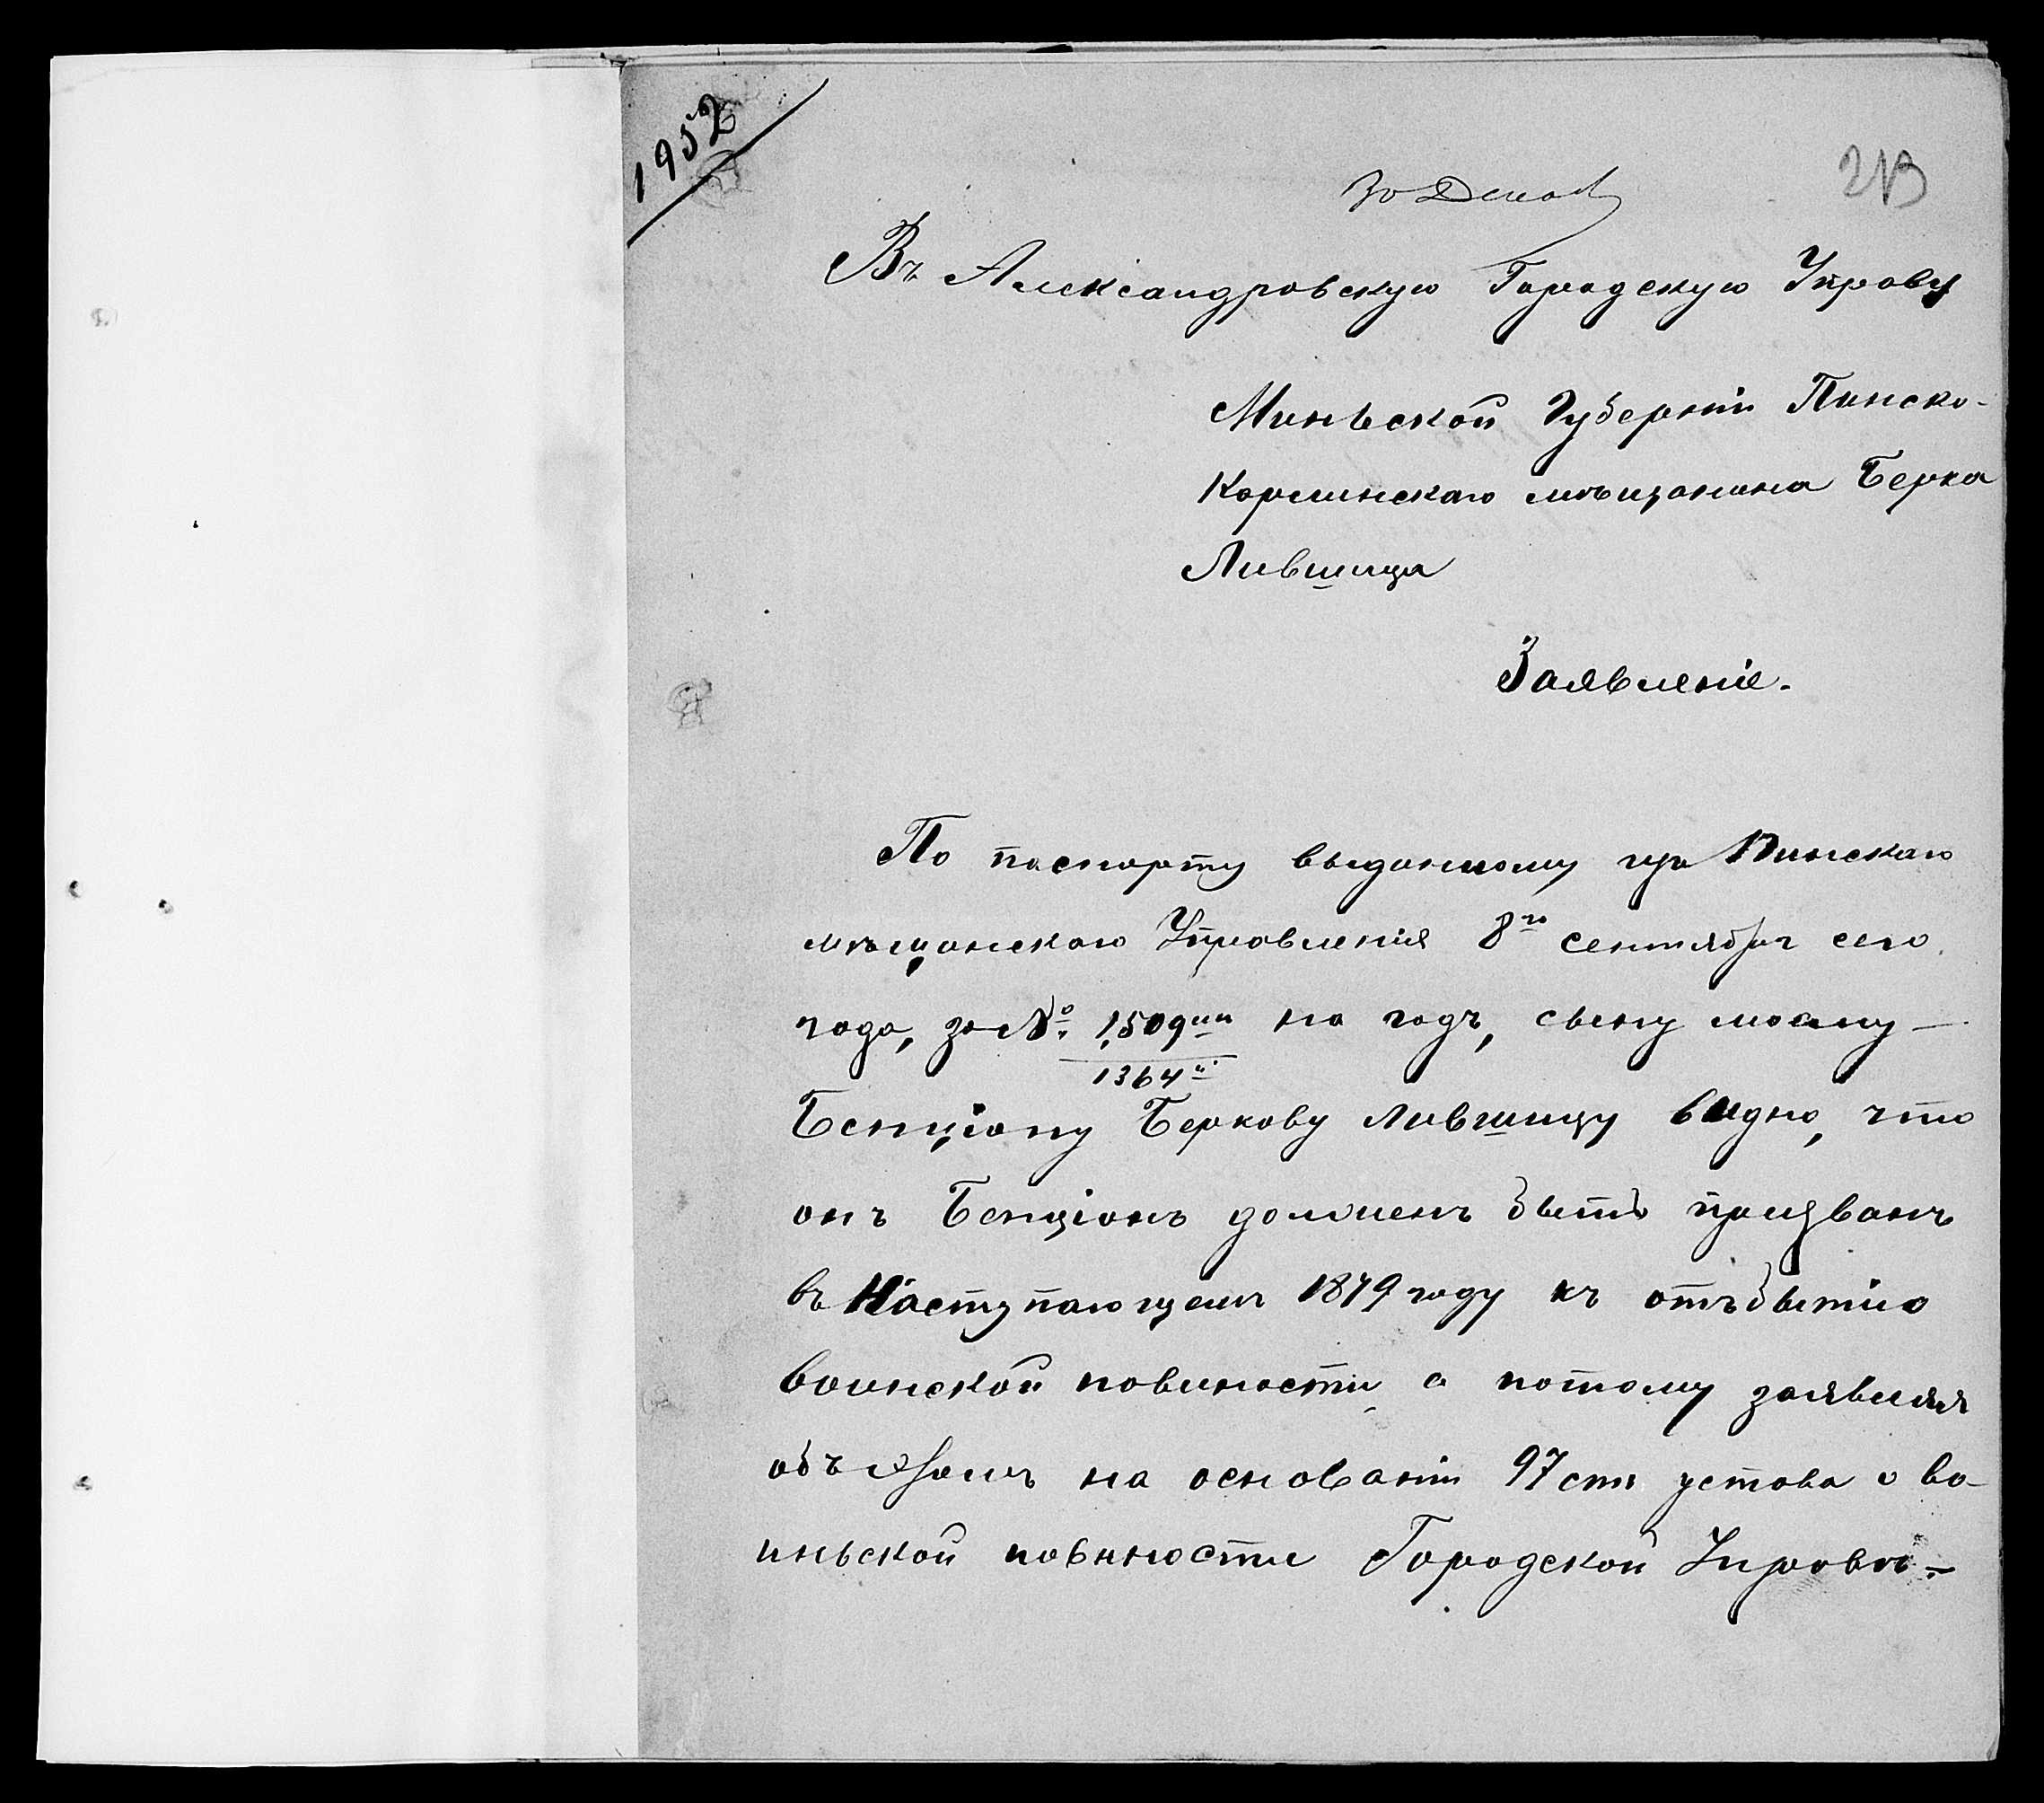 1952
213
30 Декаб
Въ Александровскую Городскую Управу
Миньской Губерніи Пинско-
Карлинскаго мѣщанина Берка
Лившица
Заявленіе.
По паспорту выданному изъ Пинскаго
мѣщанскаго Управленія 8го сентября сего
года, за № 1,509мъ на годъ, сыну моему —
1364й
Бенціону Беркову Лившицу видно, что
онъ Бенціонъ долженъ быть призванъ
въ Наступающемъ 1879 году къ отъбытію
воинской повиности, а потому заявляя
объ этомъ на основаніи 97 ст устава о во-
иньской повиности Городской Управѣ —